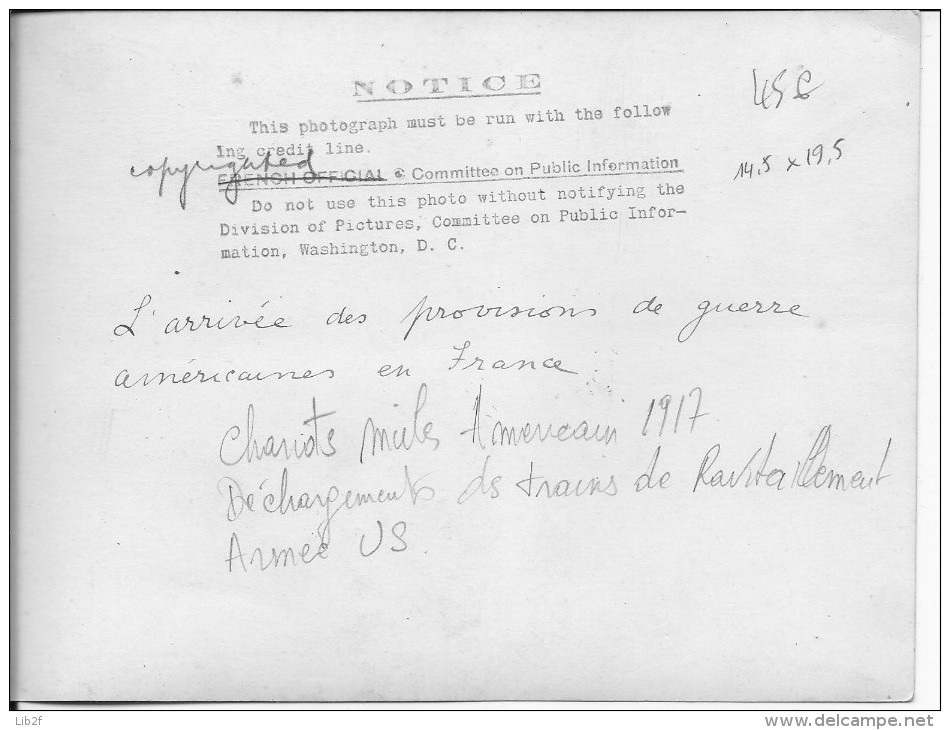 NOTICE
This photograph must be run with the follow
Ing credit line.
copyrighted
FRENCH OFFICIAL & Committee on Public Information
Do not use this photo without notifying the
Division of Pictures, Committee on Public Infor-
mation, Washington, D. C.
14,5 x 19,5
L'arrivée des provisions de guerre
américaines en France.
Chariots mules Americain 1917
Déchargements des trains de Ravitaillement
Armée US
Lib2f
www.delcampe.net